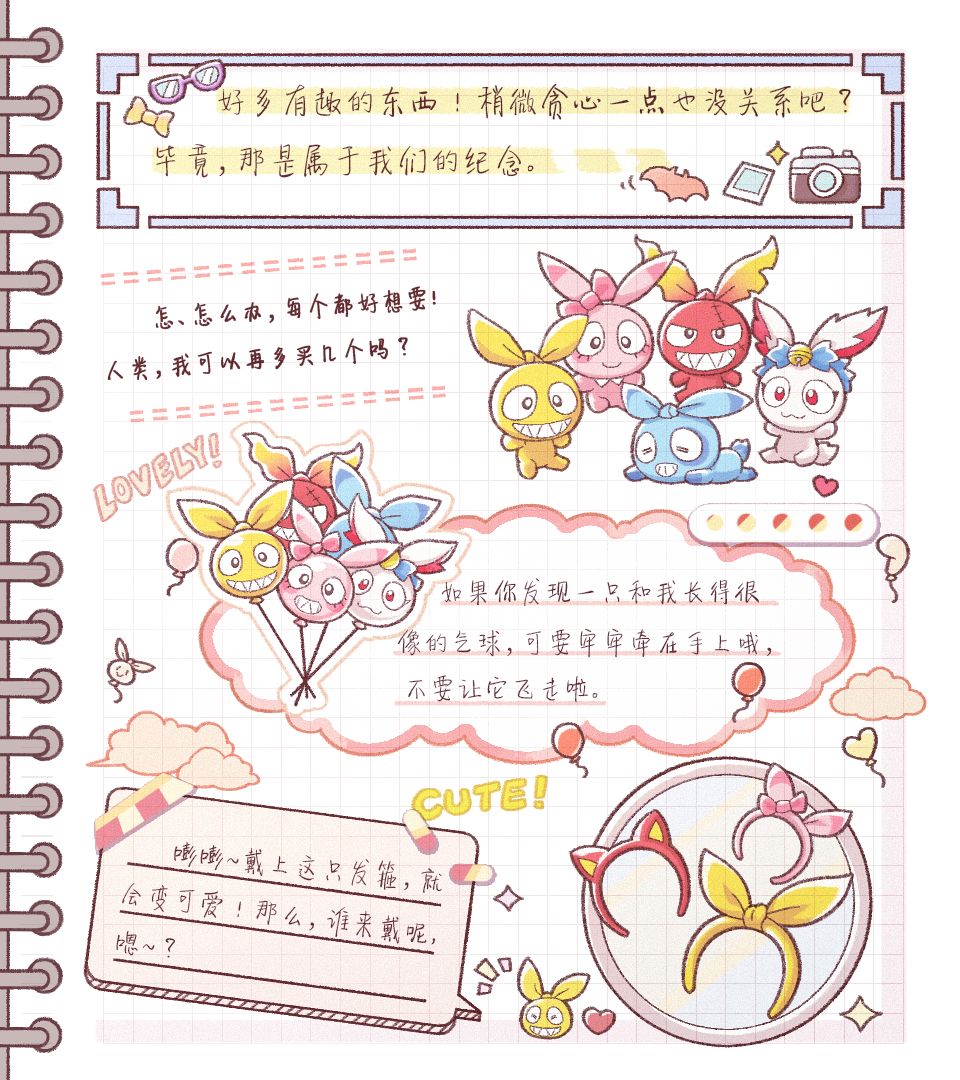 好多有趣的东西！稍微贪心一点也没关系吧？
毕竟，那是属于我们的纪念。
怎、怎么办，每个都好想要！
人类，我可以再多买几个吗？
LOVELY!
如果你发现一只和我长得很
像的气球，可要牢牢牵在手上哦，
不要让它飞走啦。
CUTE!
嘭嘭~戴上这只发箍，就
会变可爱！那么，谁来戴呢，
嗯~？